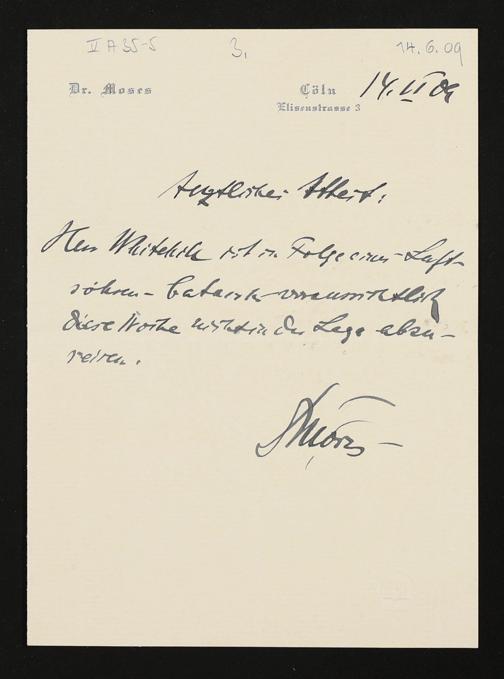 V A 35-5 3. 14.6.09
Dr. Moses Cöln 14. VI 09
Elisenstrasse 3
Ärztliches Attest:
Herr Whitehill ist in Folge eines Luft-
röhren-Catarrh voraussichtlich
diese Woche nicht in der Lage abzu-
reisen.
DrMoses